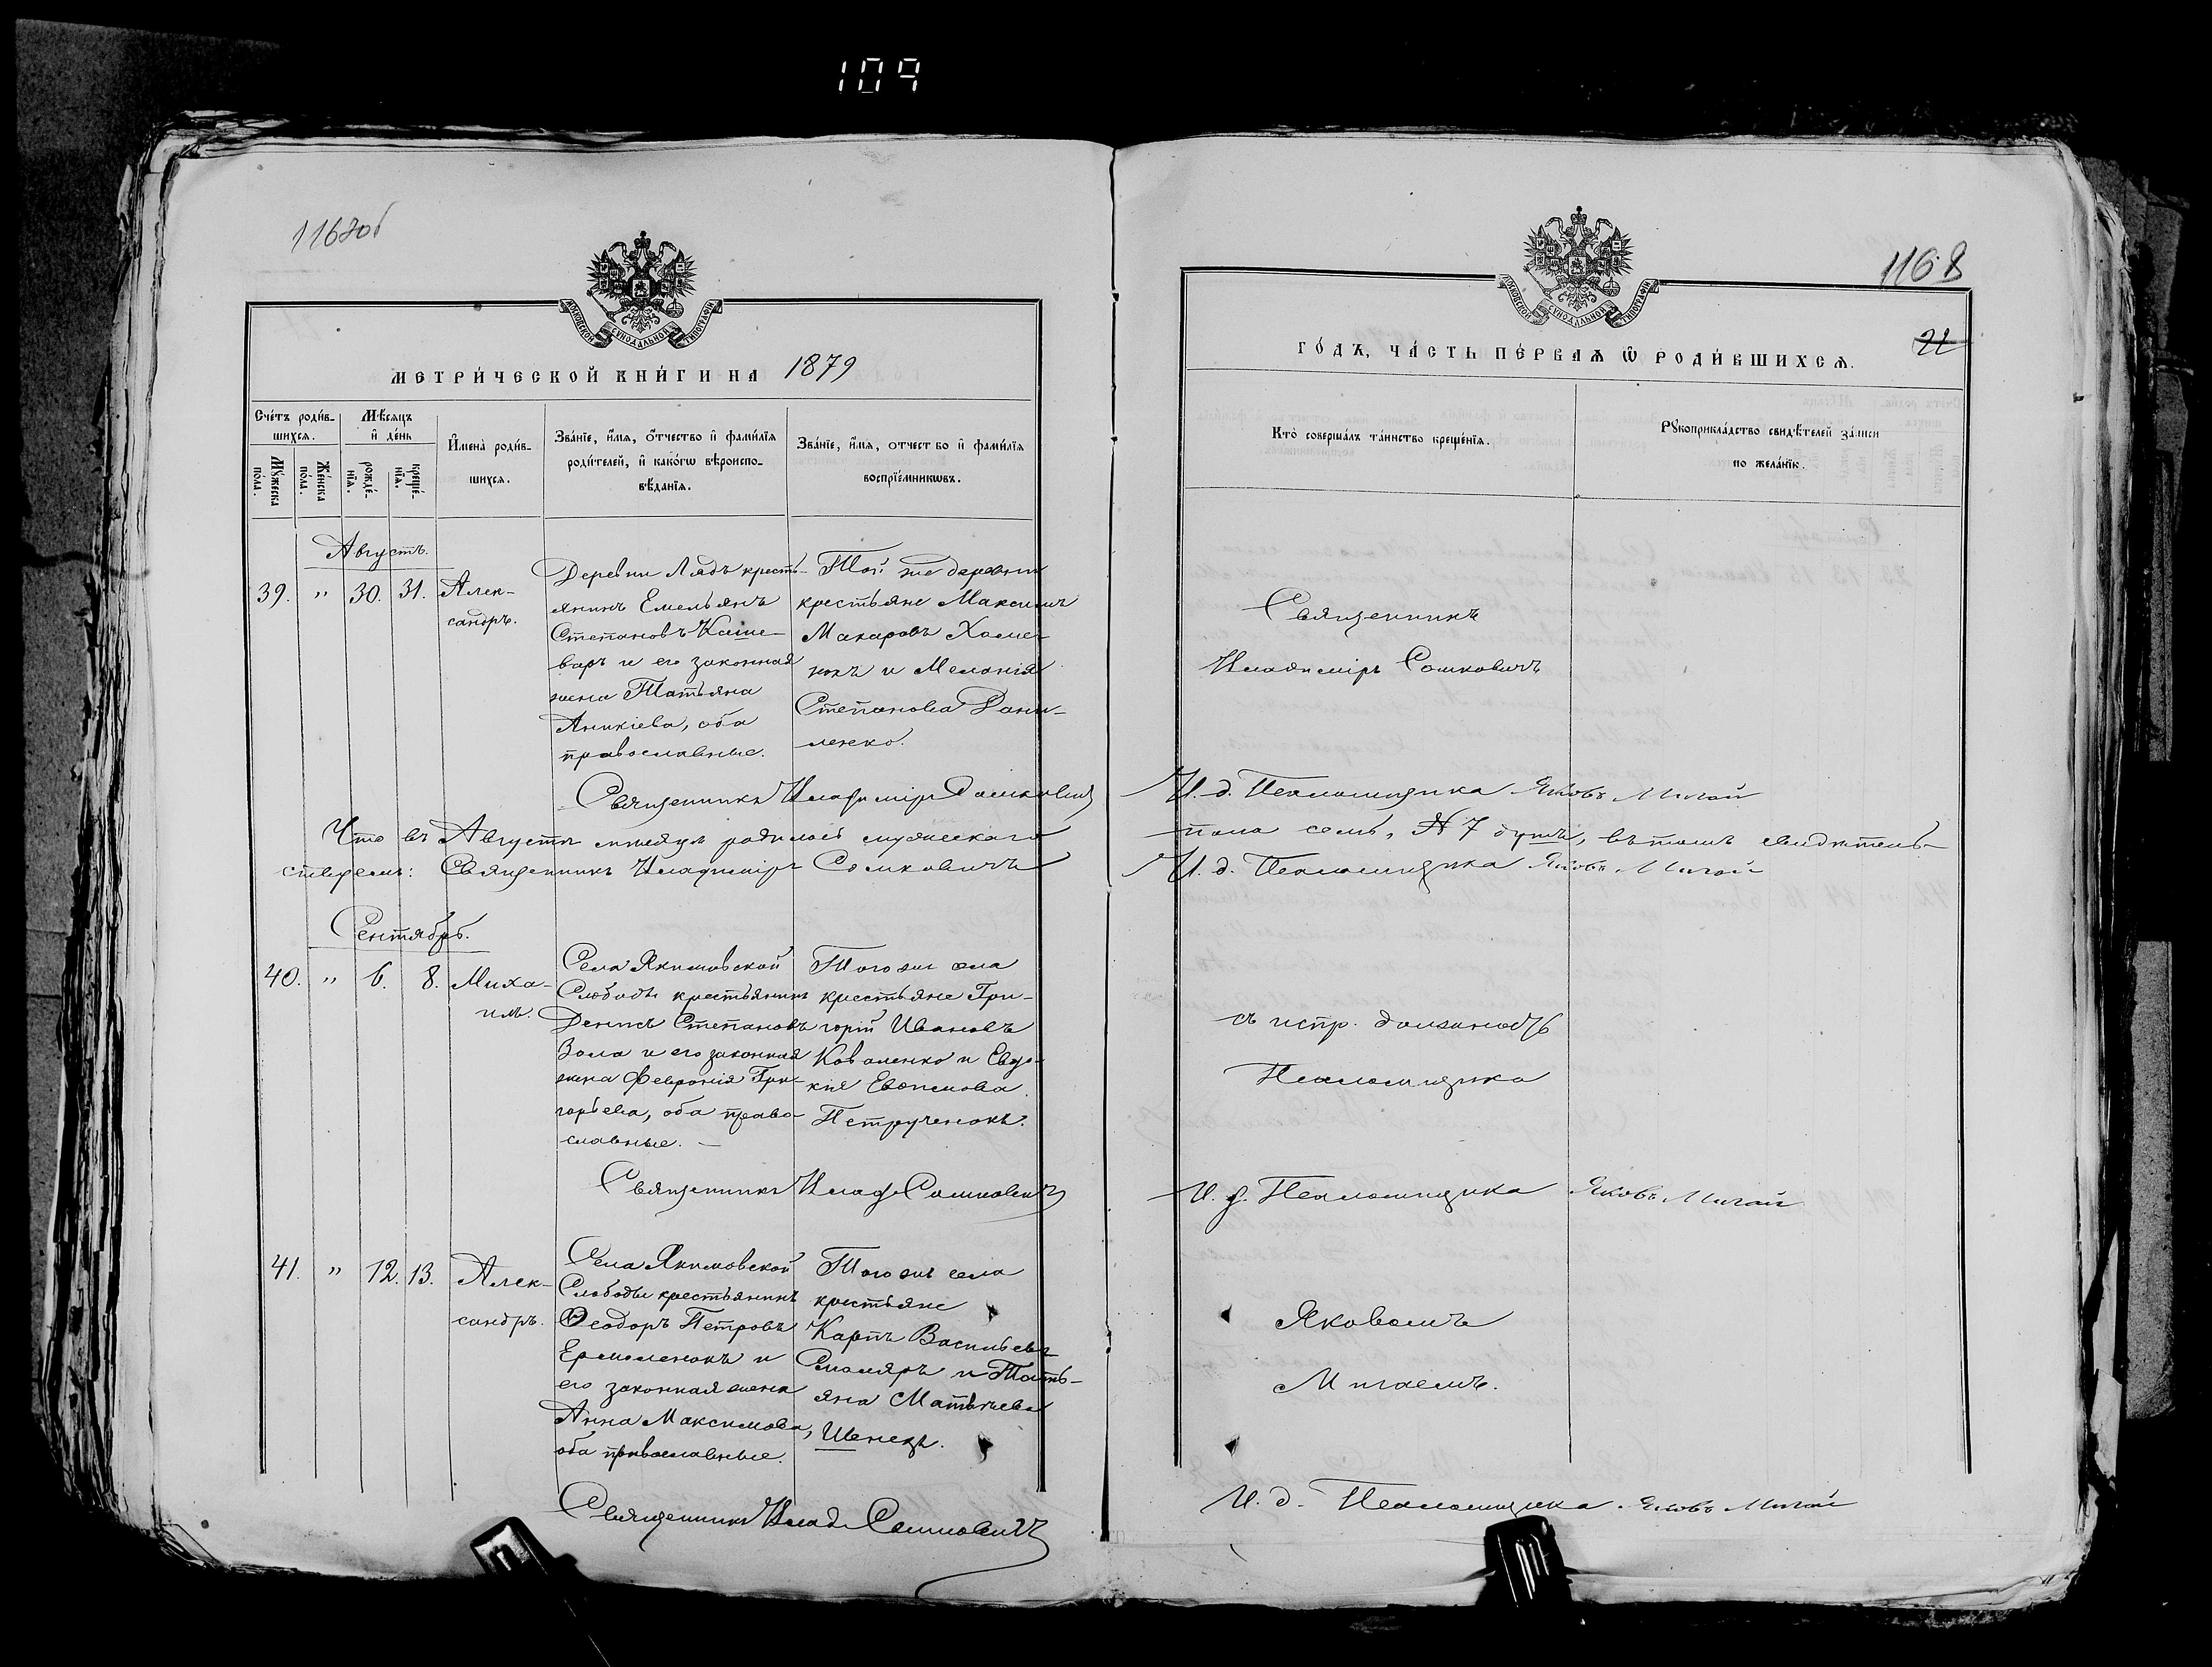 109
1167об
МОСКОВСКОЙ СУНОДАЛЬНОЙ ТИПОГРАФІИ
МЕТРИ́ЧЕСКОЙ КНИ́ГИ НА 1879
Сче́тъ роди́в-
шихсѧ.
Мѹ́жеска
пола.
Же́нска
по́ла.
Мѣ́сѧцъ
и҆ де́нь
рожде́-
нїѧ.
креще́-
нїѧ.
И҆мена̀ роди́в-
шихсѧ.
Зва́нїе, и҆́мѧ, ѻ҆́тчество и҆ фами́лїѧ
роди́телей, и҆ како́гѡ вѣроиспо-
вѣ́данїѧ.
Зва́нїе, и҆́мѧ, ѻтчество и҆ фами́лїѧ
воспрїе́мникѡвъ.
Августъ.
39. " 30. 31.
Алек-
сандръ.
Деревни Лядъ кресть-
янинъ Емельянъ
Степановъ
и его законная
жена Татьяна
Аникіева, оба
православные.
Той же деревни
крестьяне Максимъ
Макаровъ Хоме-
нокъ и Меланія
Степанова Дани-
ленко.
Священникъ Владиміръ Сомковичъ
Что въ Августѣ мѣсяцѣ родилось мужескаго
ствуемъ: Священникъ Владиміръ Сомковичъ
Сентябрь.
40. " 6. 8.
Миха-
илъ.
Села Якимовской
Слободы крестьянинъ
Денисъ Степановъ
Зола и его законная
жена Февронія Гри-
горьева, оба право-
славные. —
Того же села
крестьяне Гри-
горій Ивановъ
Коваленко и Евдо-
кія Евѳимова
Петрученокъ.
Священникъ Влад. Сомковичъ
41. " 12. 13.
Алек-
сандръ.
Села Якимовской
Слободы крестьянинъ
Ѳеодоръ Петровъ
Ермоленокъ и
его законная жена
Анна Максимова,
оба православные.
Того же села
крестьяне
Карпъ Васильевъ
Смоляръ и Тать-
яна Матвѣева
Шенецъ.
Священникъ Влад. Сомковичъ
1168
22
МОСКОВСКОЙ СУНОДАЛЬНОЙ ТИПОГРАФІИ
ГО́ДЪ, ЧА́СТЬ ПЕ́РВАѦ Ѡ҆ РОДИ́ВШИХСѦ.
Кто̀ соверша́лъ та́инство креще́нїѧ.
Рꙋкоприкла́дство свидѣ́телей за́писи
по жела́нїю.
Священникъ
Владиміръ Сомковичъ
И. д. Псаломщика Яковъ Мигай
пола семь, № 7 душъ, въ томъ свидѣтель-
И. д. Псаломщика Яковъ Мигай
съ испр. должность
Псаломщика
И. д. Псаломщика Яковъ Мигай
Яковомъ
Мигаемъ.
И. д. Псаломщика Яковъ Мигай